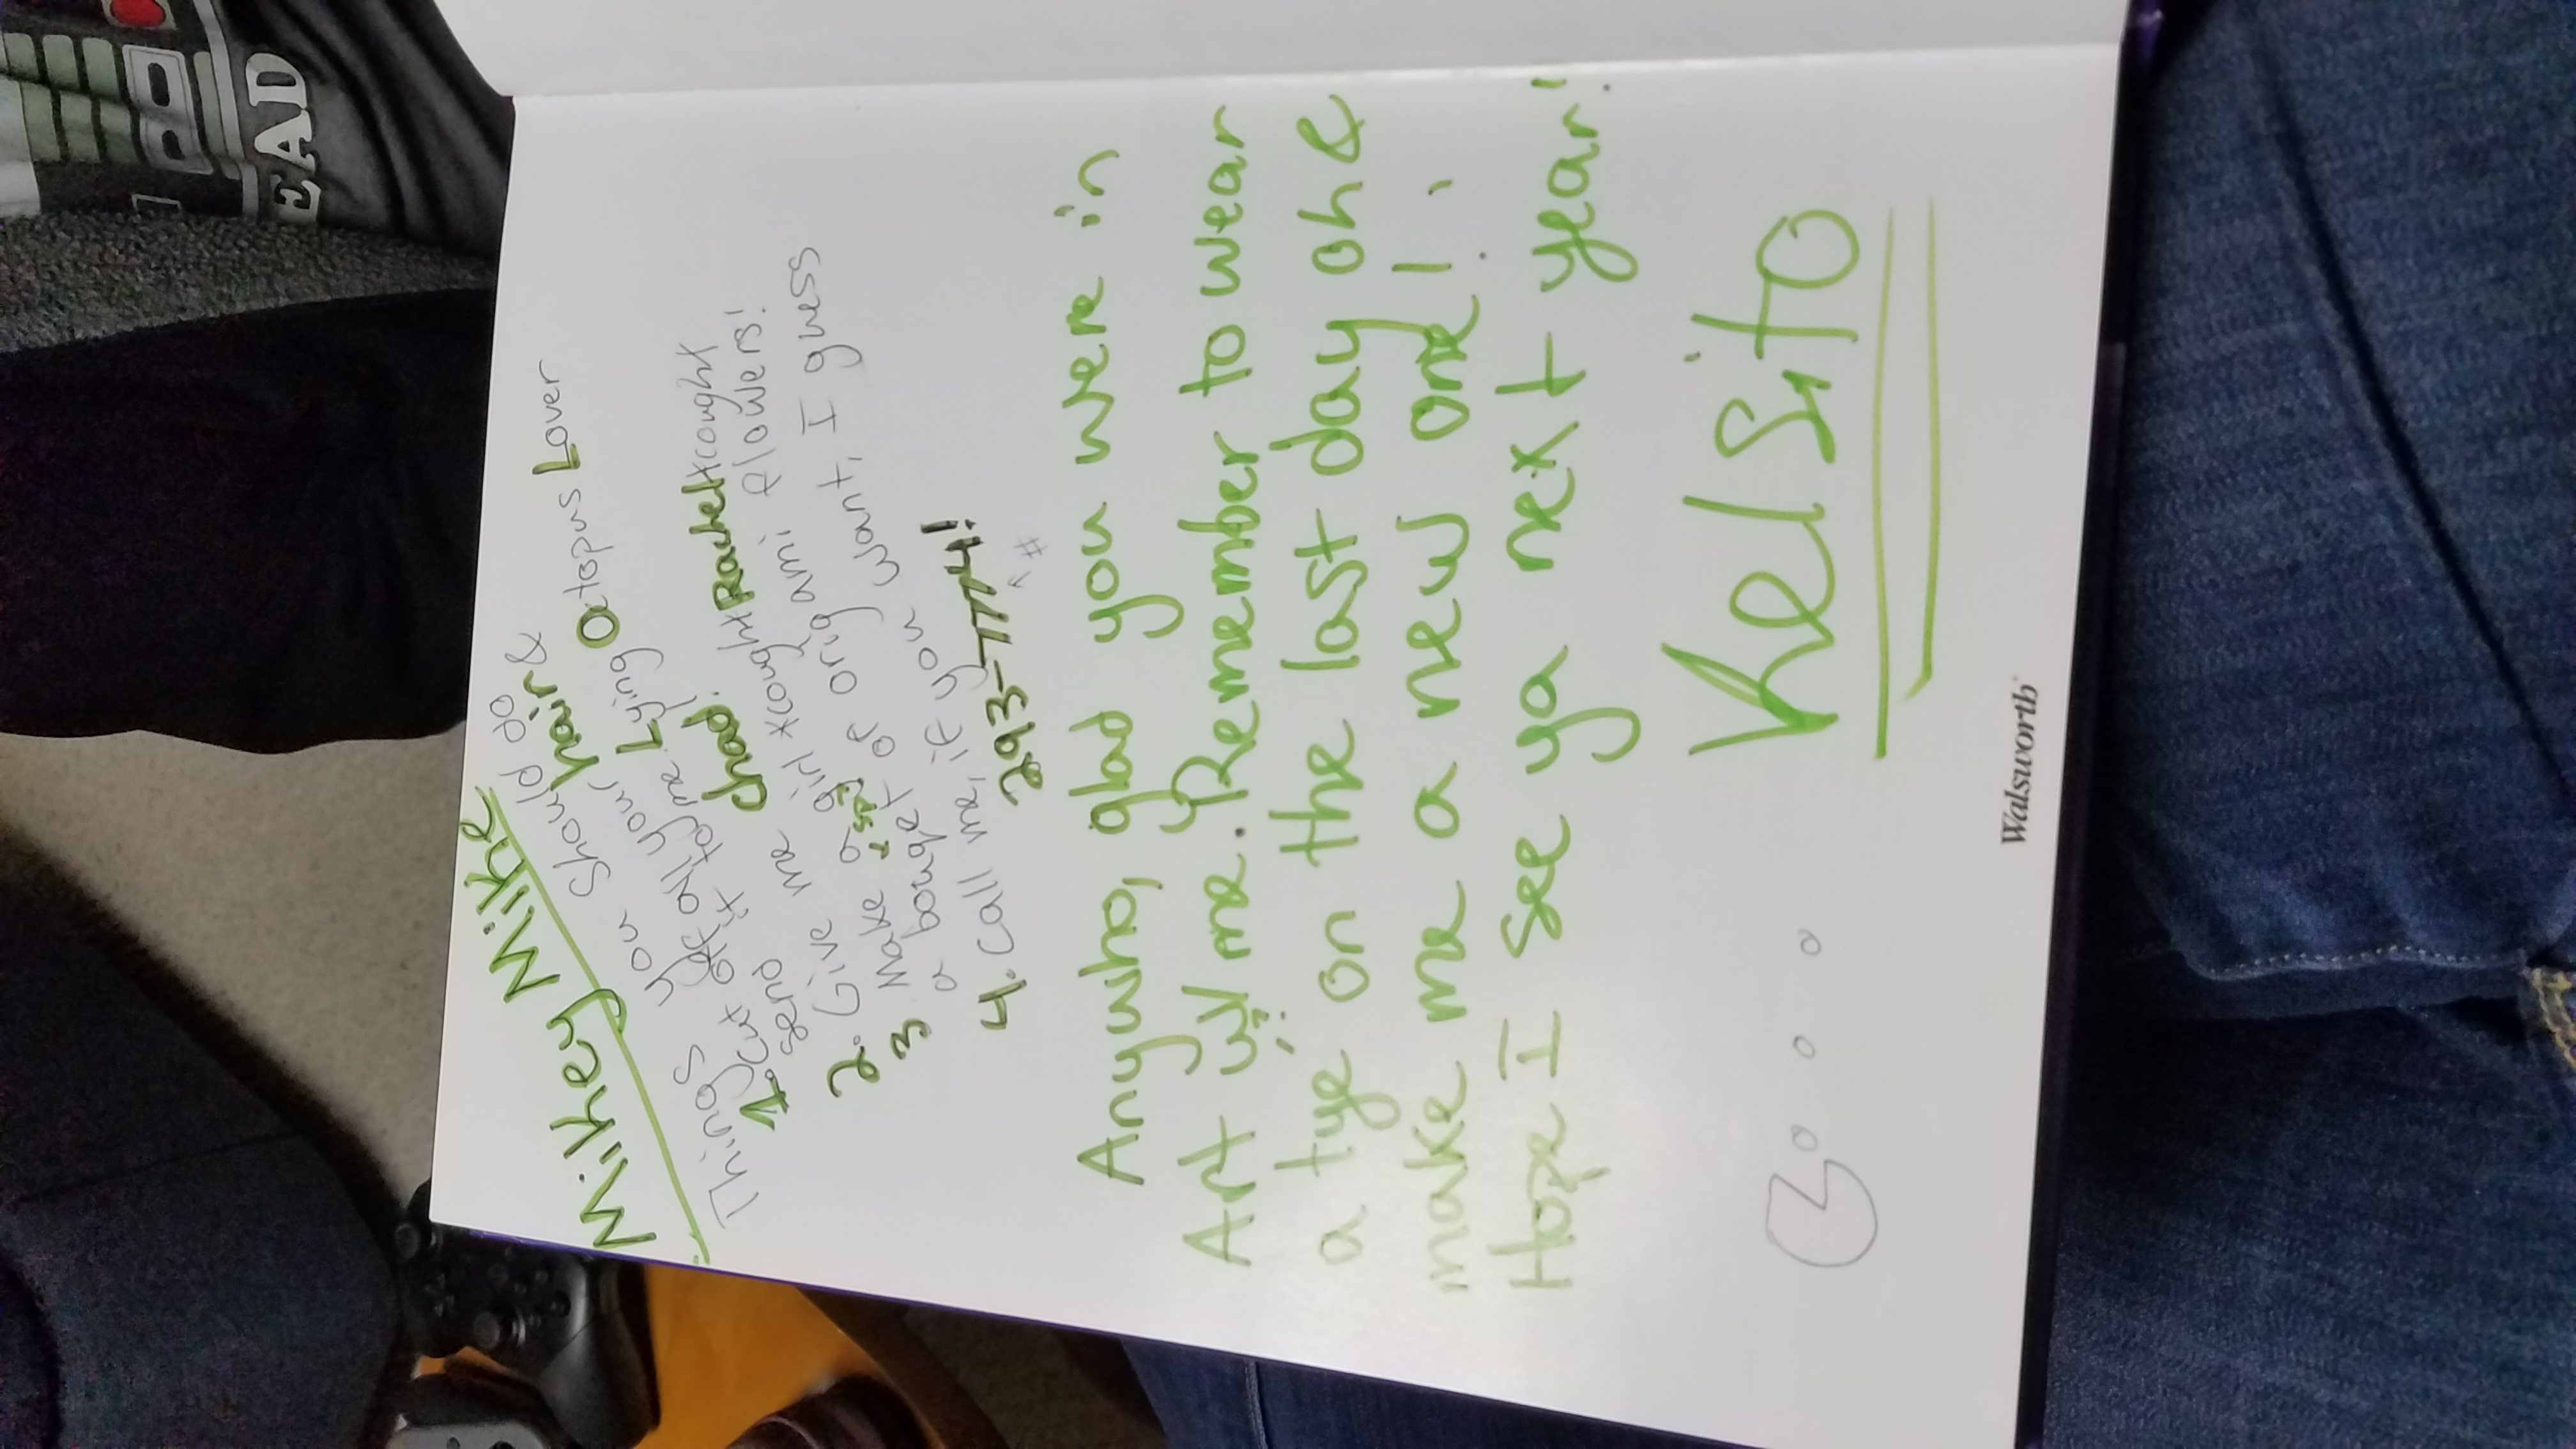 Mikey Mike
Things you should do
1. Cut off all your hair &
send it to me. Lying Octopus Lover
2. Give me Chad.
3 Make a girl *cought Rachel *cought
a bouqet of origami flowers!
4. Call me, if you want, I guess
293-7774!
^ #
Anywho, glad you were in
Art w/ me. Remember to wear
a tye on the last day oh &
make me a new one!
Hope I see ya next year!
Kelsito
Walsworth
EAD